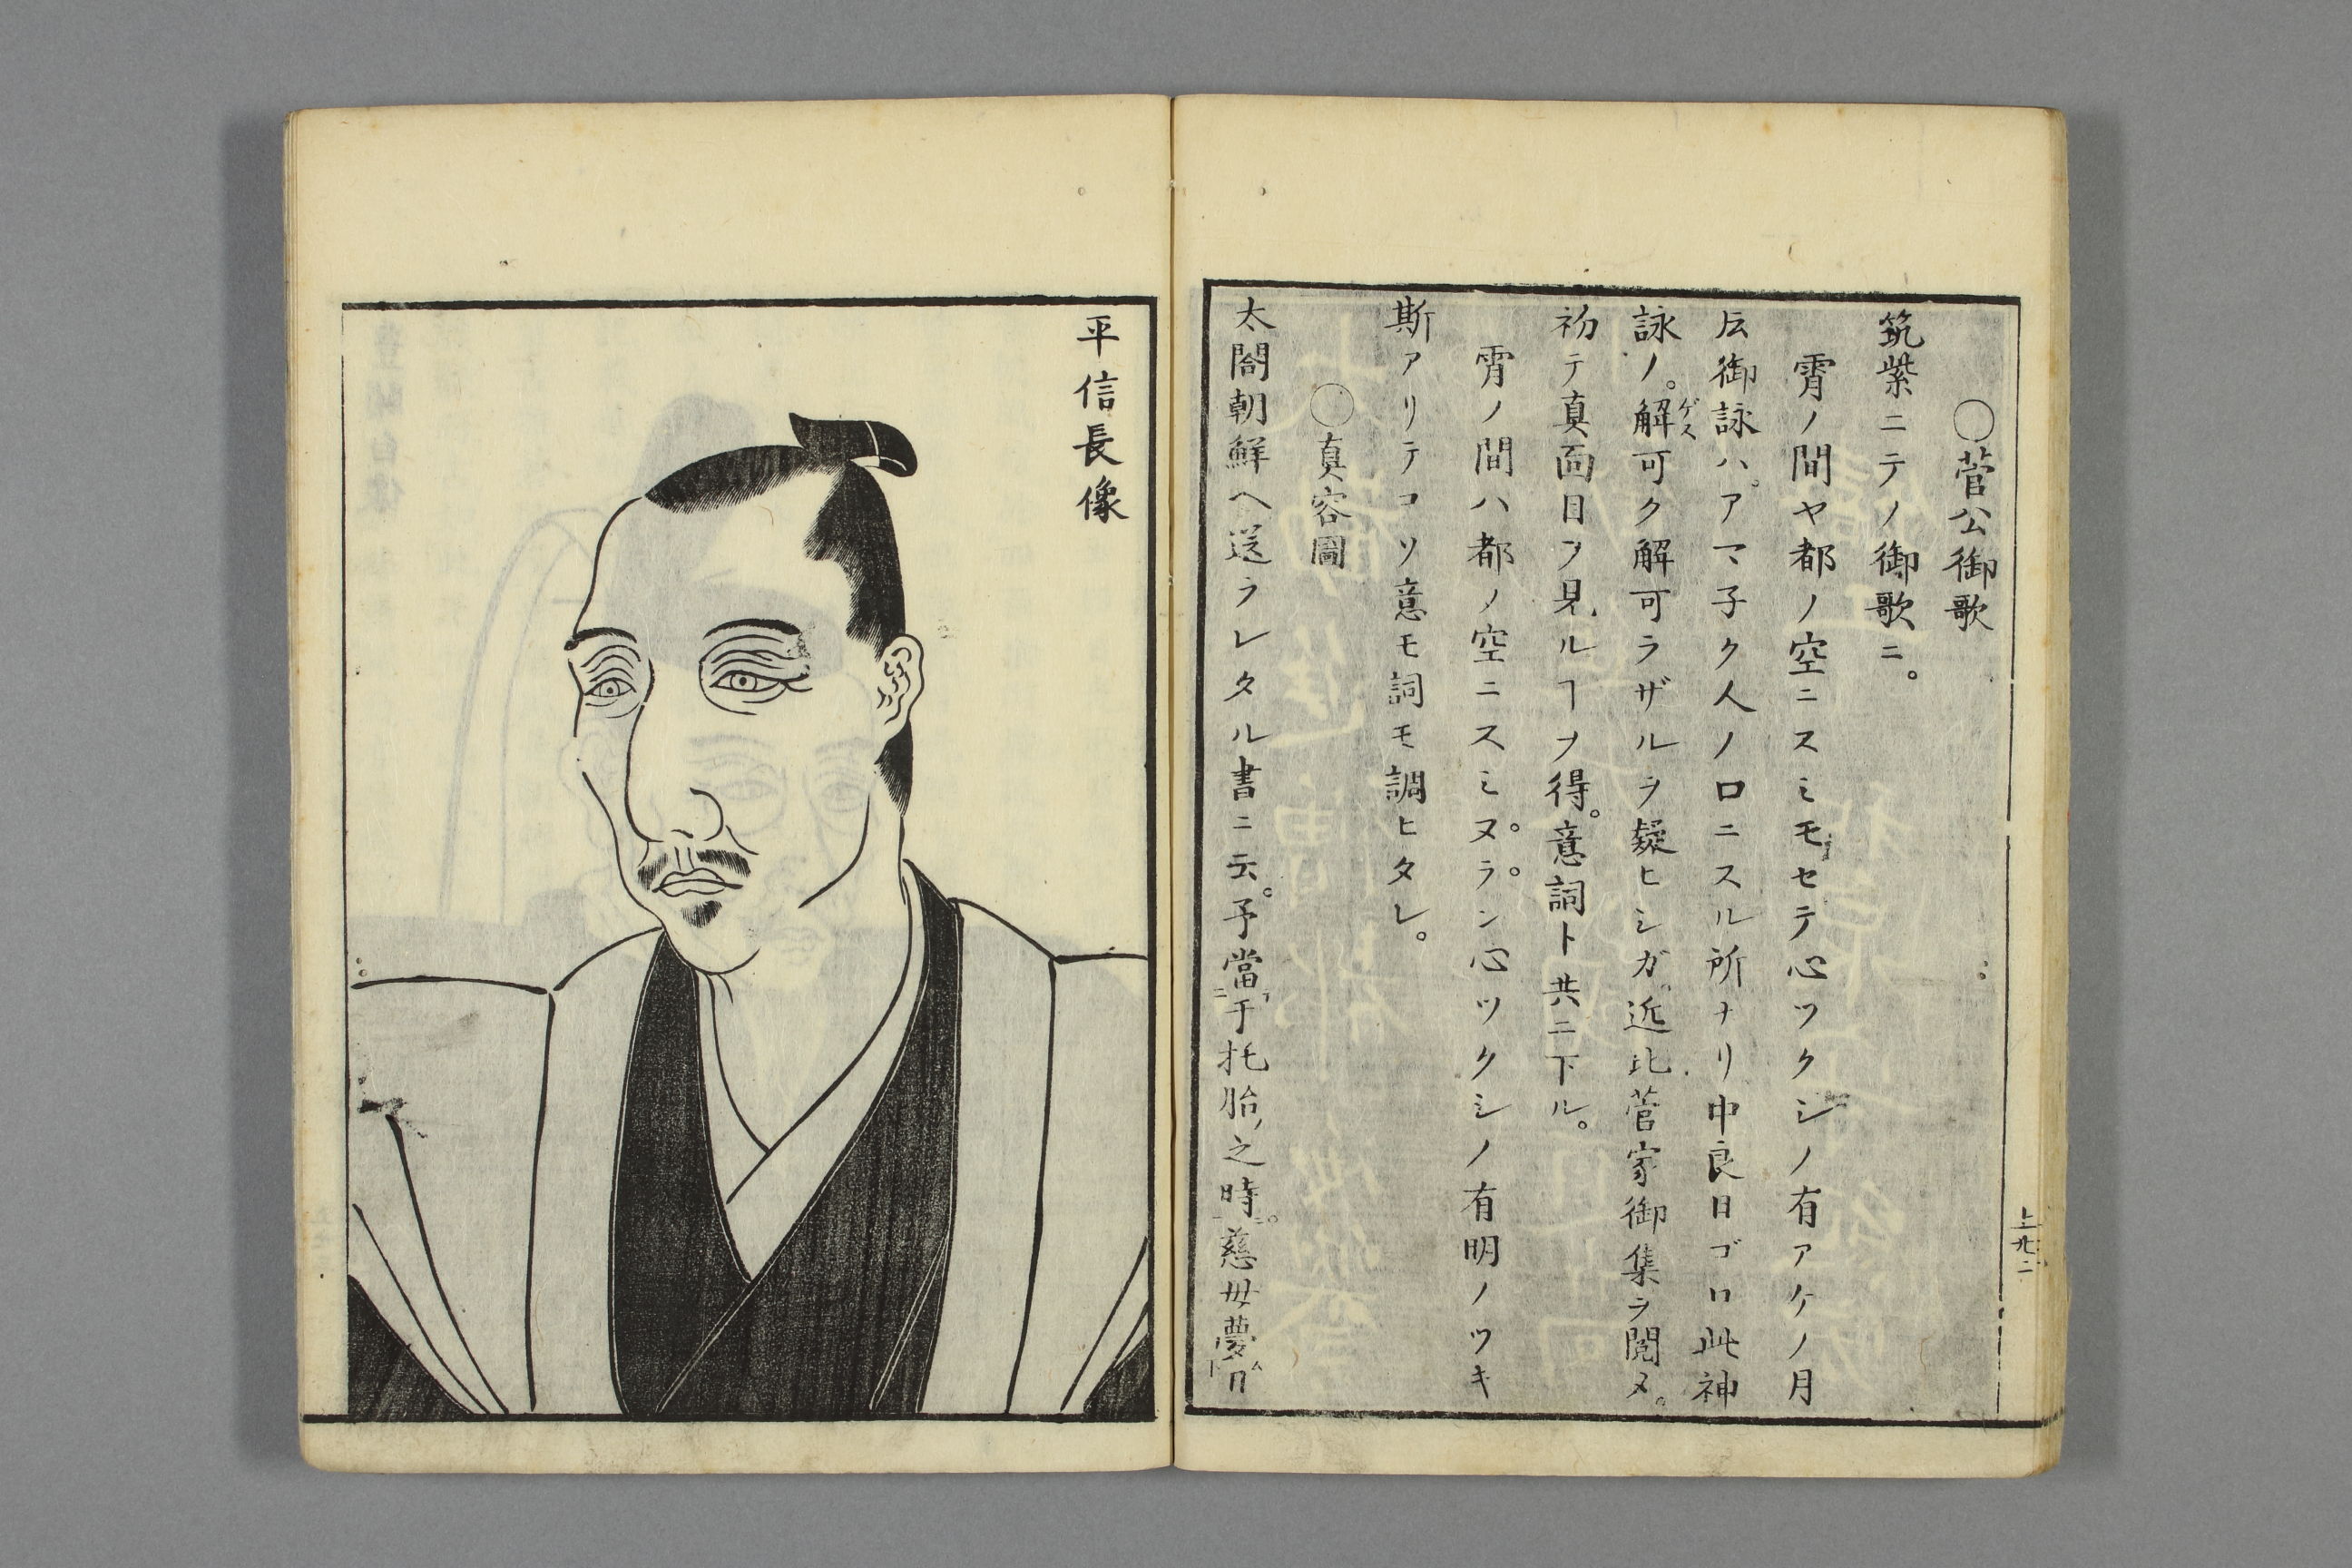 ○菅公御歌
筑紫ニテノ御歌ニ。
霄ノ間ヤ都ノ空ニスミモセテ心ツクシノ有アケノ月
㕝御詠ハ。アマ子ク人ノ口ニスル所ナリ中良日ゴロ此神
詠ノ。解可ク解可ラザルヲ疑ヒシガ近比菅家御集ヲ閲ヌ。
ゲス
初テ真面目ヲ見ルヿヲ得。意詞ト共ニ下ル。
霄ノ間ハ都ノ空ニスミヌ。ラ。ン心ツクシノ有明ノツキ
斯アリテコソ意モ詞モ調ヒタレ。
○真容圖
太閤朝鮮ヘ送ラレタル書ニ云。予當于托胎之時。慈母夢日
上 廿二
平信長像